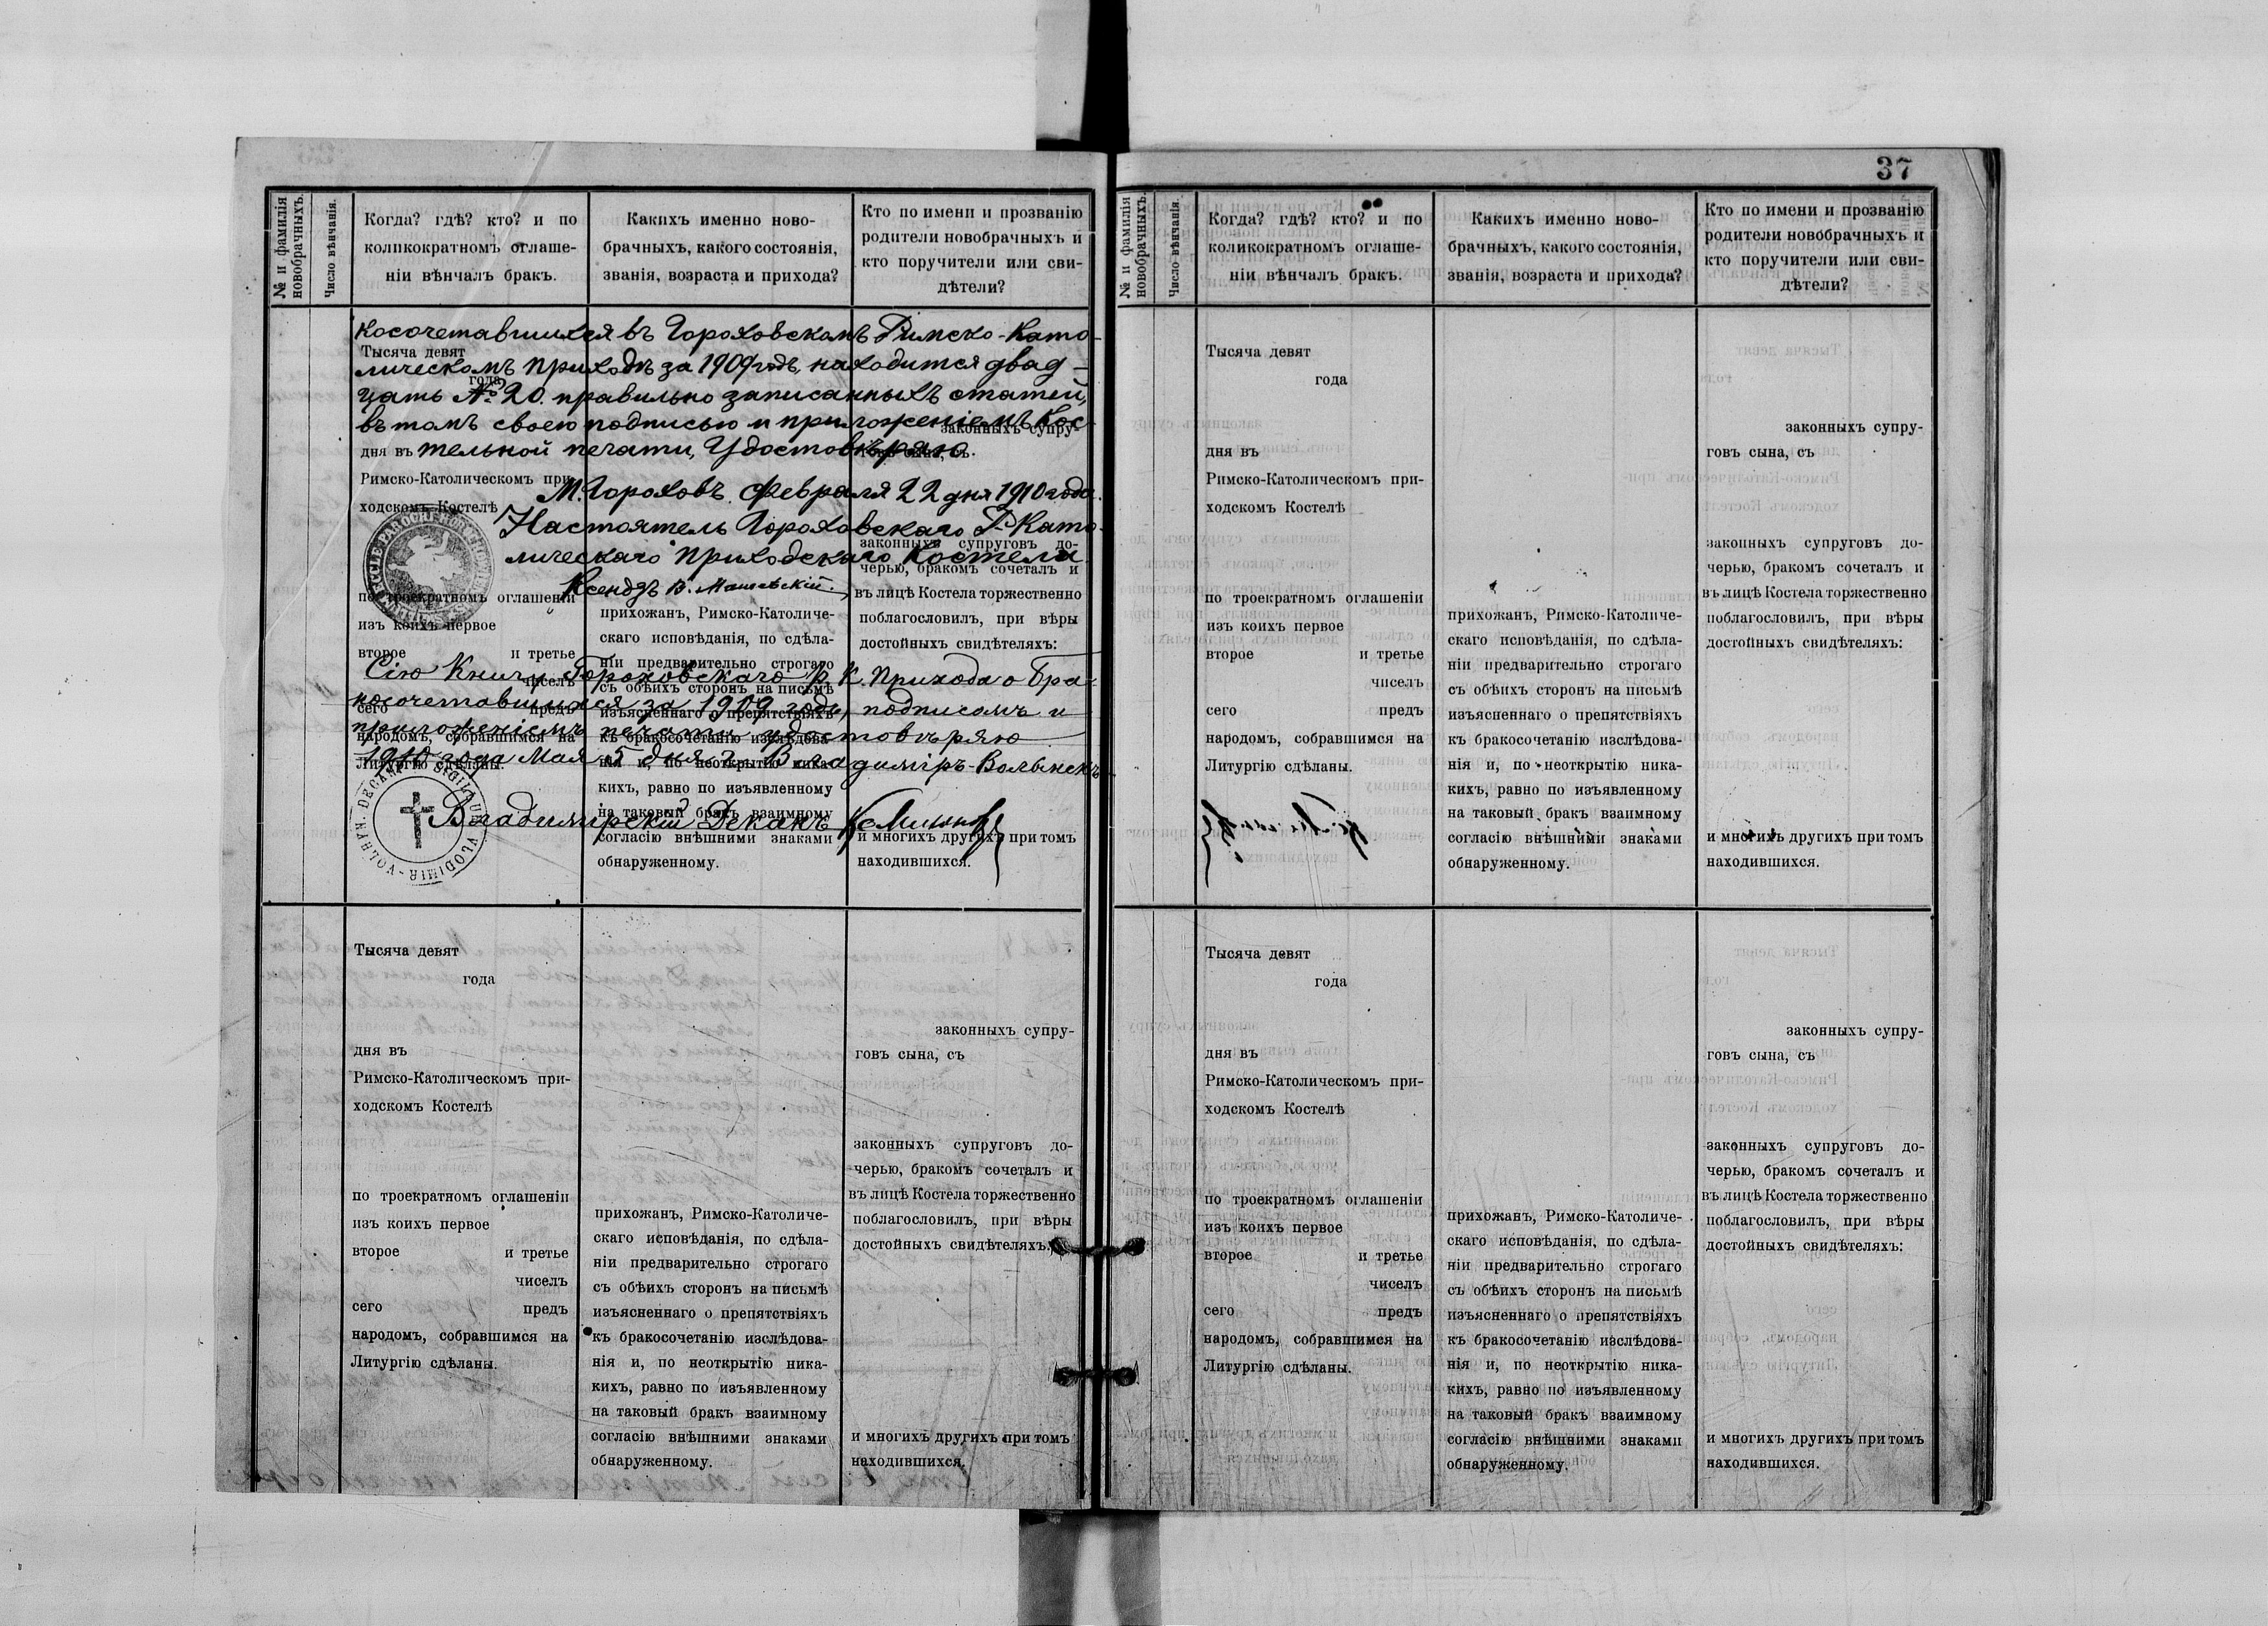 37
№ и фамилія новобрачныхъ.
Число вѣнчанія.
Когда? гдѣ? кто? и по
коликократномъ оглаше-
ніи вѣнчалъ бракъ.
Какихъ именно ново-
брачныхъ, какого состоянія,
званія, возраста и прихода?
Кто по имени и прозванію
родители новобрачныхъ и
кто поручители или сви-
дѣтели?
косочетавшихся въ Гороховскомъ Римско-Като-
лическомъ приходѣ за 1909 годъ, находится двад-
цать № 20. правильно записанныхъ статей,
въ томъ своею подписью и приложеніемъ Кос-
тельной печати, Удостовѣряю.
М. Гороховъ. Февраля 22 дня 1910 года.
Настоятель Гороховскаго Р.-Като-
лическаго Приходскаго Костела
Ксендзъ В.
Тысяча девят
года
дня въ
Римско-Католическомъ при-
ходскомъ Костелѣ
по троекратномъ оглашеніи
изъ коихъ первое
второе и третье
чиселъ
сего предъ
народомъ, собравшимся на
Литургію сдѣланы.
прихожанъ, Римско-Католиче-
скаго исповѣданія, по сдѣла-
ніи предварительно строгаго
съ обѣихъ сторонъ на письмѣ
изъясненнаго о препятствіяхъ
къ бракосочетанію изслѣдова-
нія и, по неоткрытію ника-
кихъ, равно по изъявленному
на таковый бракъ взаимному
согласію внѣшними знаками
обнаруженному.
законныхъ супру-
говъ сына, съ
законныхъ супруговъ до-
черью, бракомъ сочеталъ и
въ лицѣ Костела торжественно
поблагословилъ, при вѣры
достойныхъ свидѣтеляхъ:
и многихъ другихъ при томъ
находившихся.
Сію Книгу Гороховскаго Р. К. Прихода о Бра-
косочетавшихся за 1909 годъ, подписомъ и
приложеніемъ печати удостовѣряю
1910 года Мая 5 дня г. Владиміръ-Волынскъ
DECAN. SIGILLUM VLODIMIR-VOLHYN.
Владимірскій Деканъ
Тысяча девят
года
дня въ
Римско-Католическомъ при-
ходскомъ Костелѣ
по троекратномъ оглашеніи
изъ коихъ первое
второе и третье
чиселъ
сего предъ
народомъ, собравшимся на
Литургію сдѣланы.
прихожанъ, Римско-Католиче-
скаго исповѣданія, по сдѣла-
ніи предварительно строгаго
съ обѣихъ сторонъ на письмѣ
изъясненнаго о препятствіяхъ
къ бракосочетанію изслѣдова-
нія и, по неоткрытію ника-
кихъ, равно по изъявленному
на таковый бракъ взаимному
согласію внѣшними знаками
обнаруженному.
законныхъ супру-
говъ сына, съ
законныхъ супруговъ до-
черью, бракомъ сочеталъ и
въ лицѣ Костела торжественно
поблагословилъ, при вѣры
достойныхъ свидѣтеляхъ:
и многихъ другихъ при томъ
находившихся.
№ и фамилія новобрачныхъ.
Число вѣнчанія.
Когда? гдѣ? кто? и по
коликократномъ оглаше-
ніи вѣнчалъ бракъ.
Какихъ именно ново-
брачныхъ, какого состоянія,
званія, возраста и прихода?
Кто по имени и прозванію
родители новобрачныхъ и
кто поручители или сви-
дѣтели?
Тысяча девят
года
дня въ
Римско-Католическомъ при-
ходскомъ Костелѣ
по троекратномъ оглашеніи
изъ коихъ первое
второе и третье
чиселъ
сего предъ
народомъ, собравшимся на
Литургію сдѣланы.
прихожанъ, Римско-Католиче-
скаго исповѣданія, по сдѣла-
ніи предварительно строгаго
съ обѣихъ сторонъ на письмѣ
изъясненнаго о препятствіяхъ
къ бракосочетанію изслѣдова-
нія и, по неоткрытію ника-
кихъ, равно по изъявленному
на таковый бракъ взаимному
согласію внѣшними знаками
обнаруженному.
законныхъ супру-
говъ сына, съ
законныхъ супруговъ до-
черью, бракомъ сочеталъ и
въ лицѣ Костела торжественно
поблагословилъ, при вѣры
достойныхъ свидѣтеляхъ:
и многихъ другихъ при томъ
находившихся.
Тысяча девят
года
дня въ
Римско-Католическомъ при-
ходскомъ Костелѣ
по троекратномъ оглашеніи
изъ коихъ первое
второе и третье
чиселъ
сего предъ
народомъ, собравшимся на
Литургію сдѣланы.
прихожанъ, Римско-Католиче-
скаго исповѣданія, по сдѣла-
ніи предварительно строгаго
съ обѣихъ сторонъ на письмѣ
изъясненнаго о препятствіяхъ
къ бракосочетанію изслѣдова-
нія и, по неоткрытію ника-
кихъ, равно по изъявленному
на таковый бракъ взаимному
согласію внѣшними знаками
обнаруженному.
законныхъ супру-
говъ сына, съ
законныхъ супруговъ до-
черью, бракомъ сочеталъ и
въ лицѣ Костела торжественно
поблагословилъ, при вѣры
достойныхъ свидѣтеляхъ:
и многихъ другихъ при томъ
находившихся.